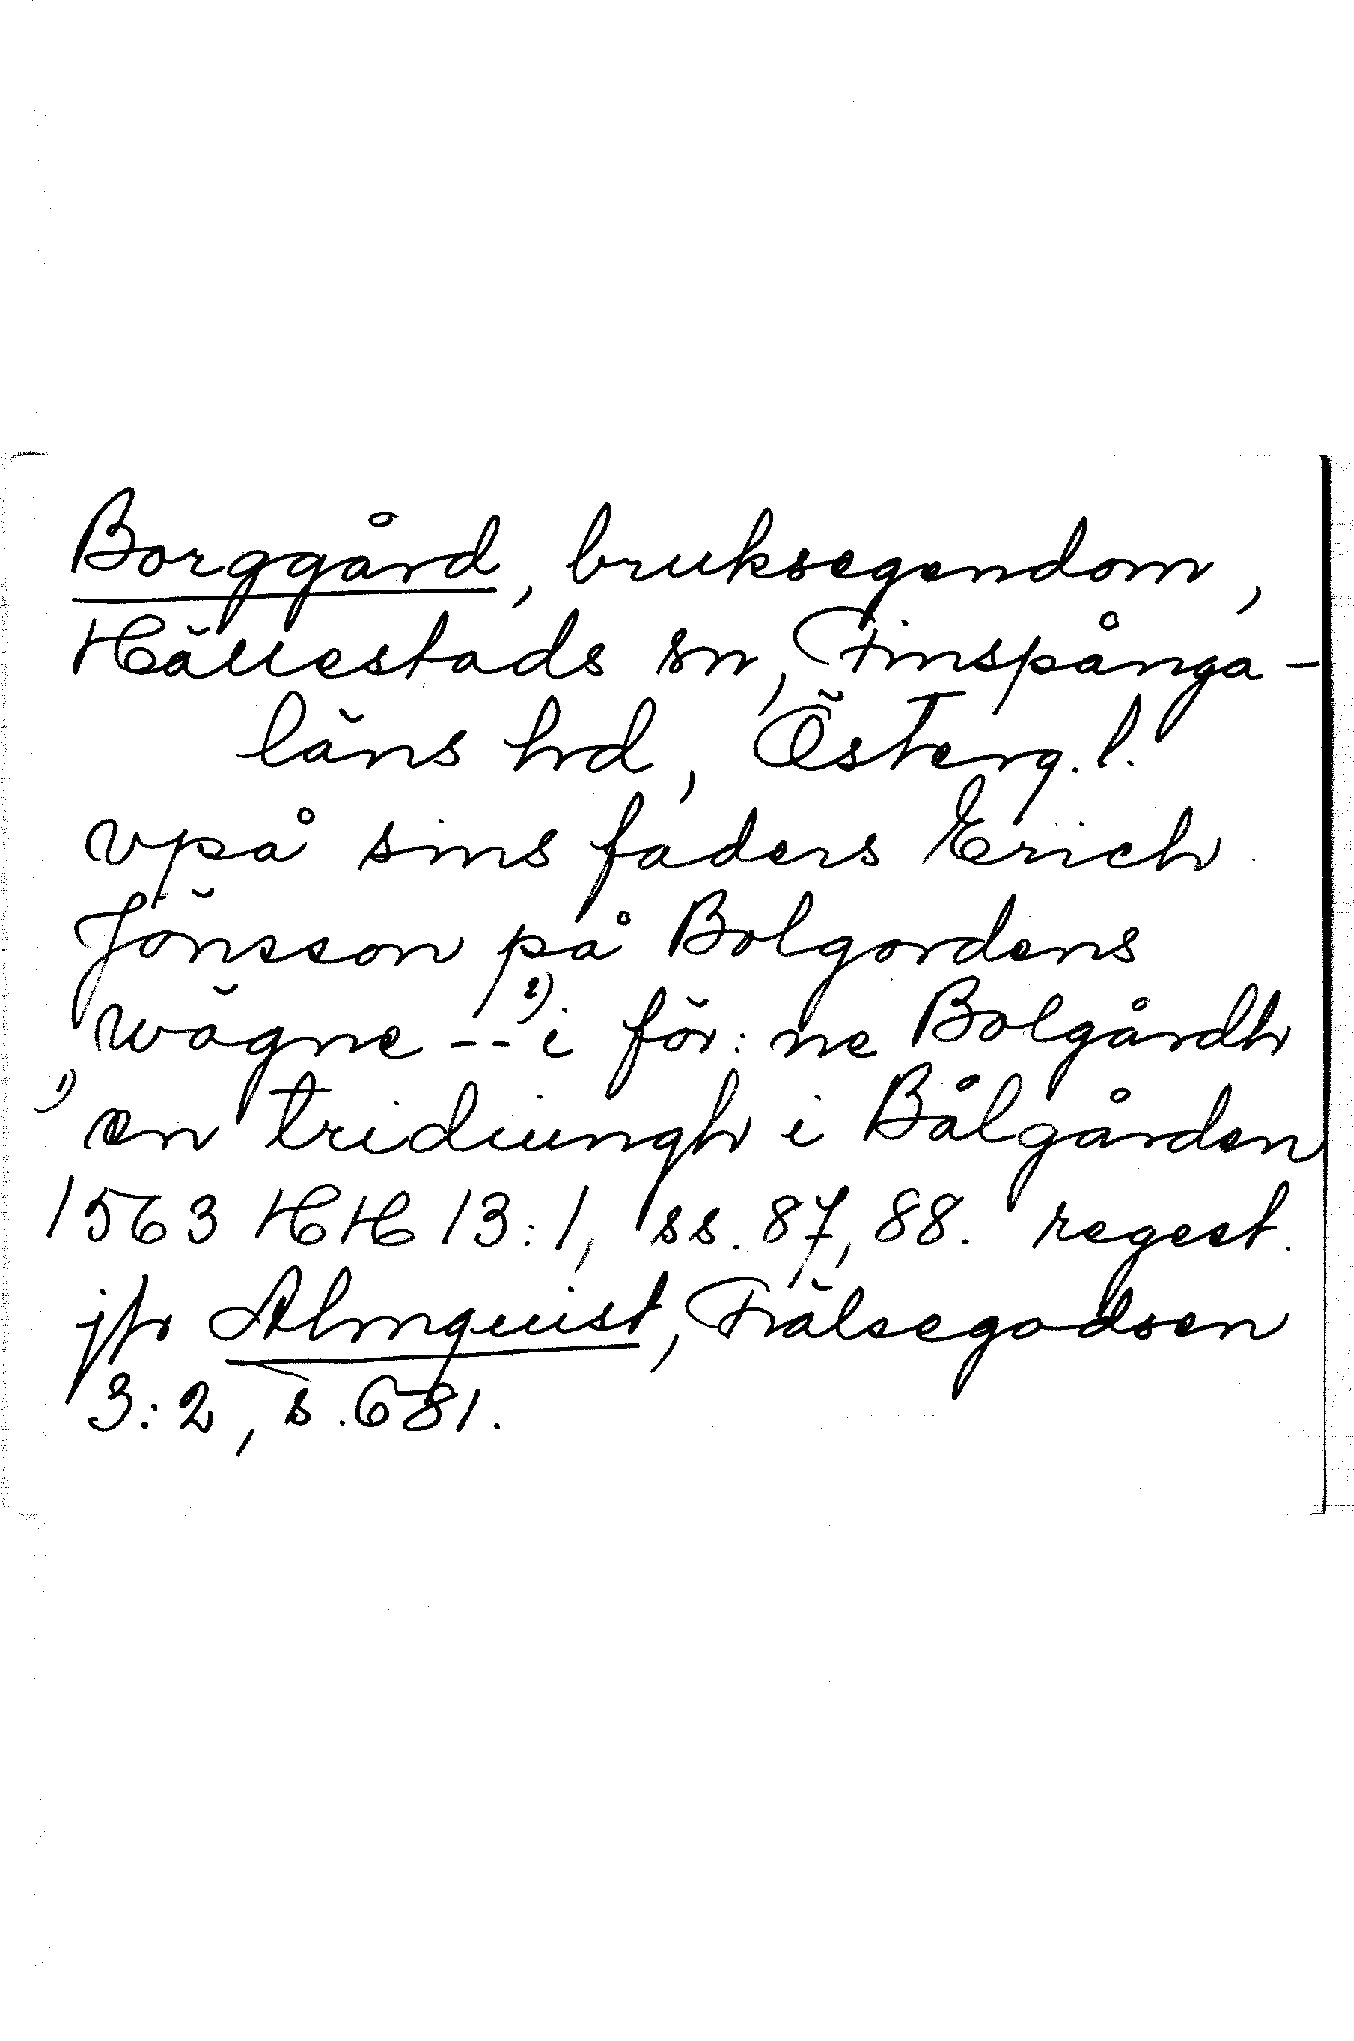 Borggård, bruksegendom,
Hällestads sn, Finspånga-
läns hd, Österg. l.
vpå sins faders Erich
Jönsson på Bolgordens
wägne -- 2) i för: ne Bolgårdh
1) en tridiungh i Bålgården
1563 HH 13:1, ss. 87, 88. regest.
jfr Almquist, Frälsegodsen
3:2, s. 681.